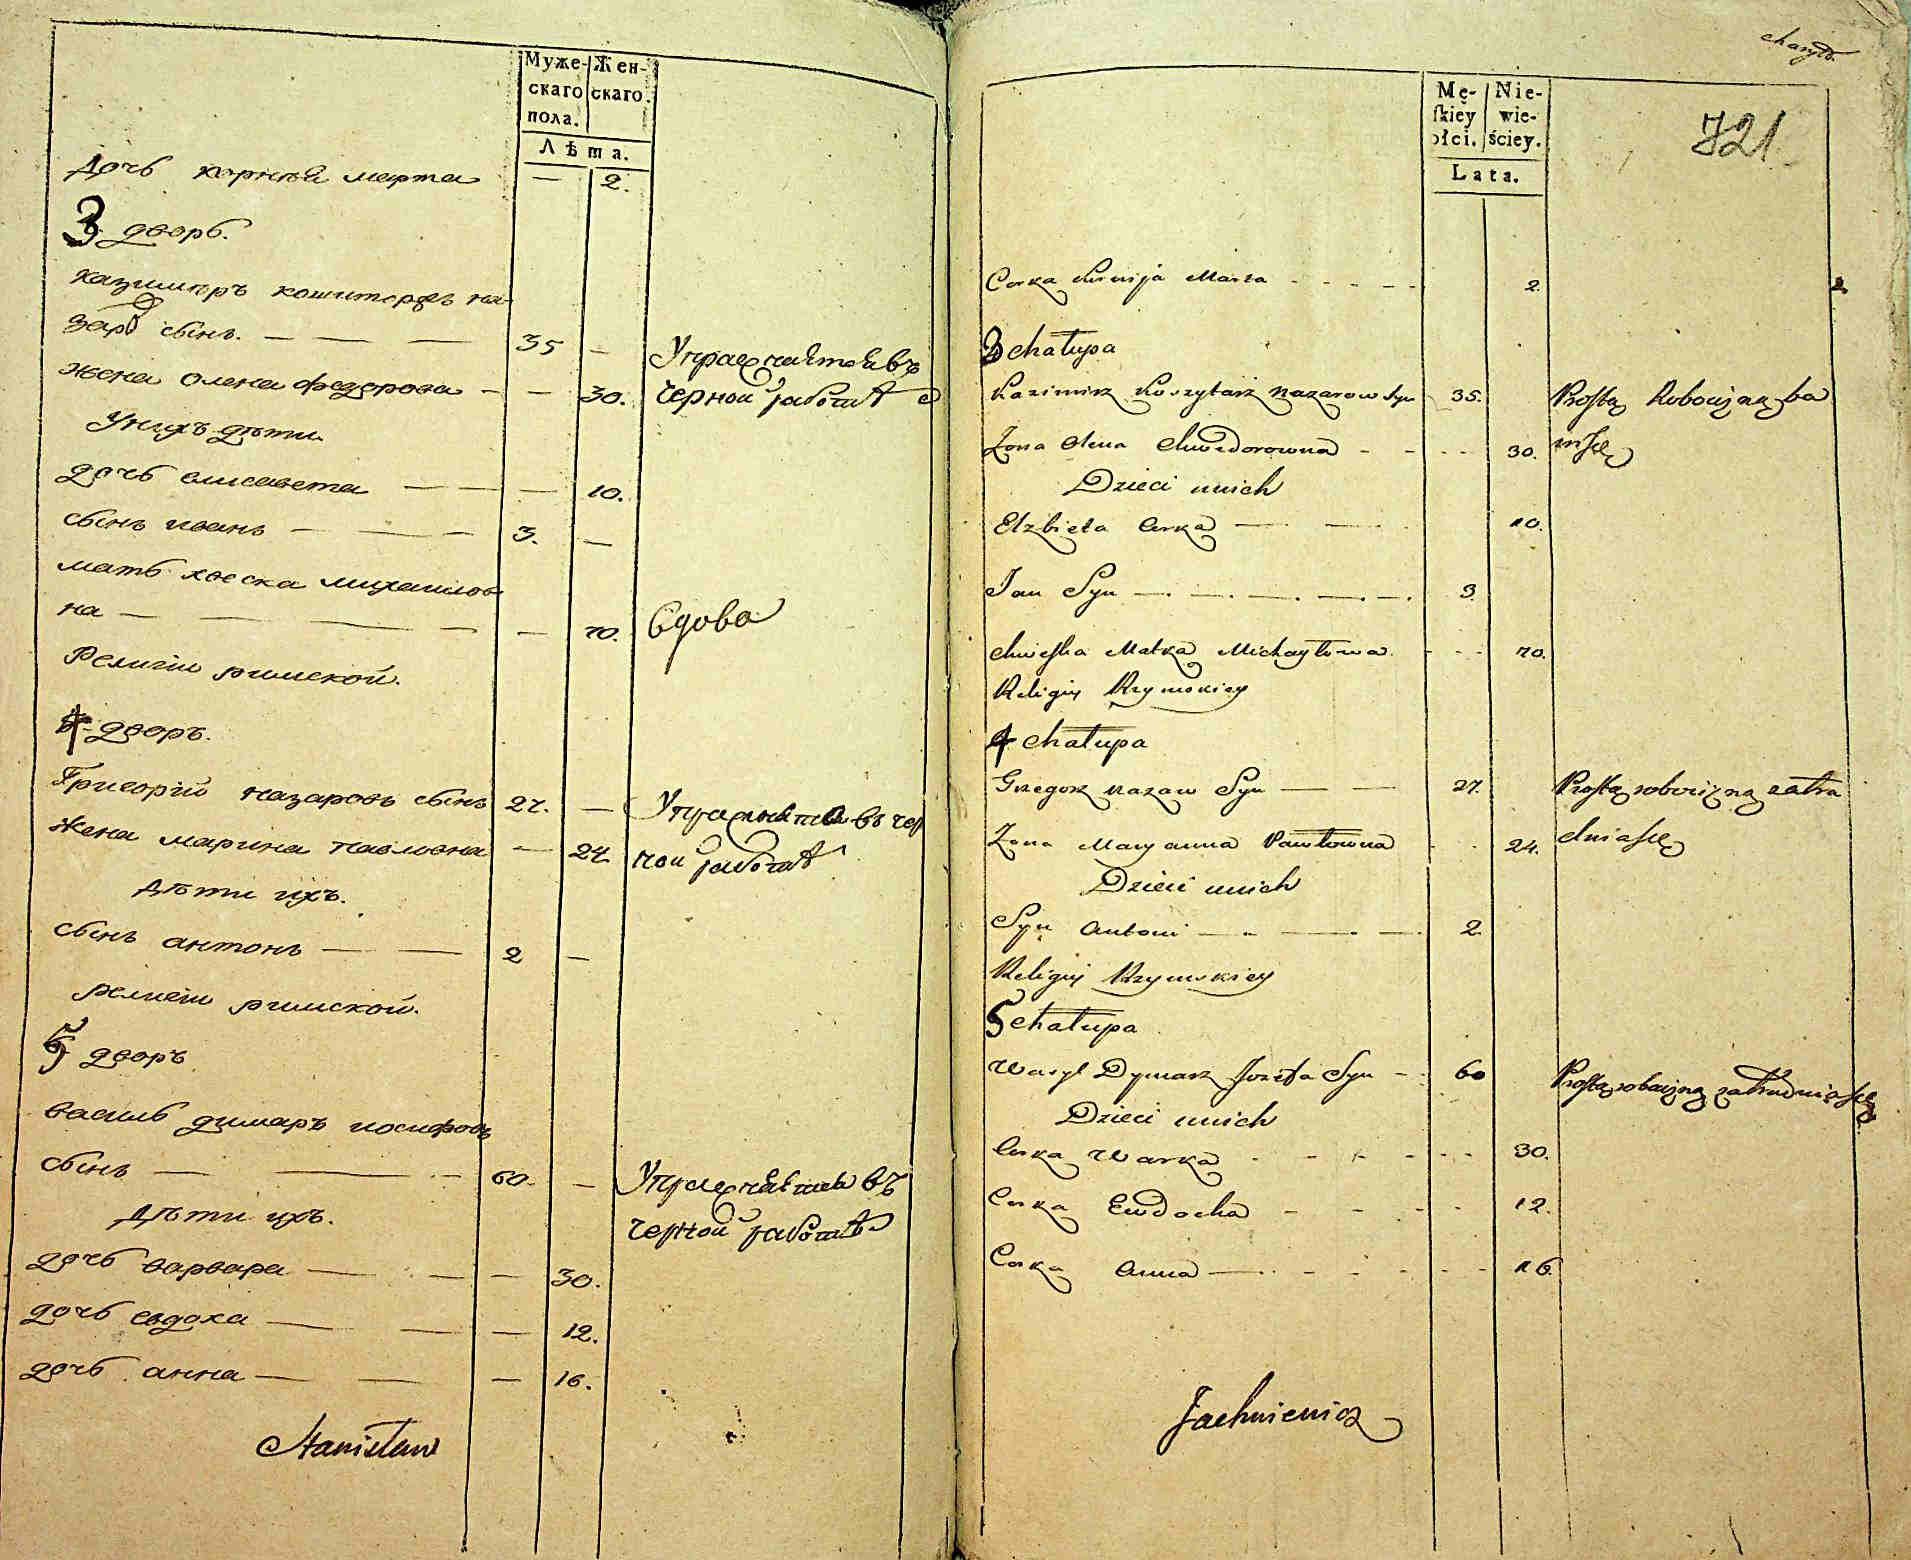 Муже- Жен-
скаго скаго.
пола.
Лѣта.
Дочь корнѣя марта — 2.
3 дворъ.
казимиръ кошитаръ на-
зара сынъ. — — — 35 —
Упражняется въ
жена олена федорова — — 30. черной работѣ
У нихъ дѣти
дочь елисавета — — — 10.
сынъ иванъ — — — 3. —
мать хвеска михайлов
на — — — — — 70. вдова
Религіи римской.
4 дворъ.
Григорій назаровъ сынъ 27. — Упражняется въ чер
жена марина павловна — 24 ной работѣ
дѣти ихъ.
сынъ антонъ — — 2 —
религіи римской.
5 дворъ
василь димаръ иосифовъ
сынъ — — — 60. — Упражняется въ
Дѣти ихъ. черной работѣ
дочь варвара — — — 30.
дочь евдоха — — — 12.
дочь анна — — — 16.
Stanisław
Mę- Nie-
skiey wie-
płci. ściey.
Lata.
721
Corka Kornija Marta - - - - - 2.
3 chałupa
Kazimirz Koszytarz Nazarow Syn 35. Prostą Robocizną ba
Żona Olena Chwedorowna - - - - 30. wi się
Dzieci u nich
Elzbieta Corka — — 10.
Jan Syn — — — — — 3.
Chwieska Matka Michayłowa - - - 70.
Religii Rzymskiey
4 chałupa
Grzegorz Nazarow Syn — — 27. Prostą roboczizną zatru
Żona Maryanna Pawłowna - - 24. dnia się
Dzieci u nich
Syn Antoni — - — — 2.
Religii Rzymskiey
5 chałupa
Wasyl Dymarz Jozefa Syn - 60 Prostą robocizną zatrudnia się
Dzieci u nich
Corka Warka - - - - - - 30.
Corka Ewdocha - - - - 12.
Corka Anna — - - - - - 16.
Jachniewicz